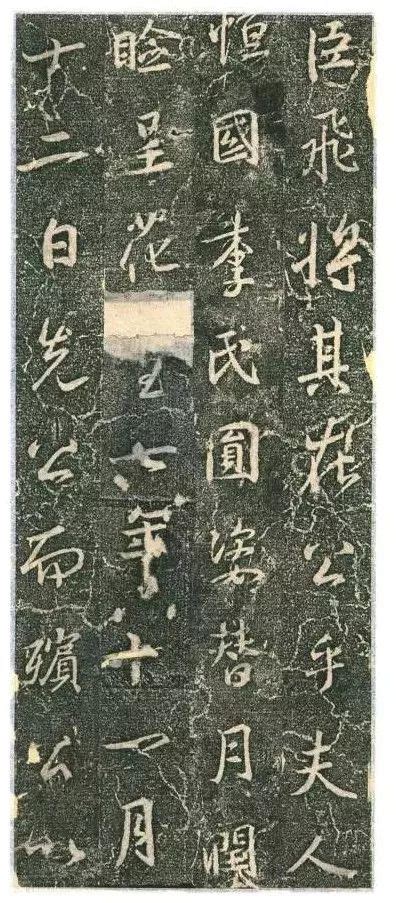 臣飛將其在公乎夫人
恒國李氏圓姿替月潤
瞼呈花七年十一月
十二日先公而殯公以